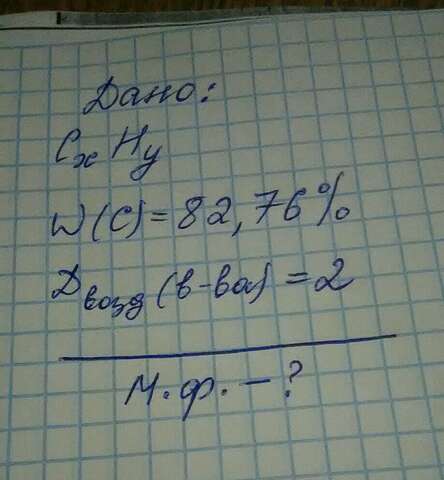 Дано:
CxHy
W(C)=82,76%
Двозд(в-ва)=2
М.ф. - ?